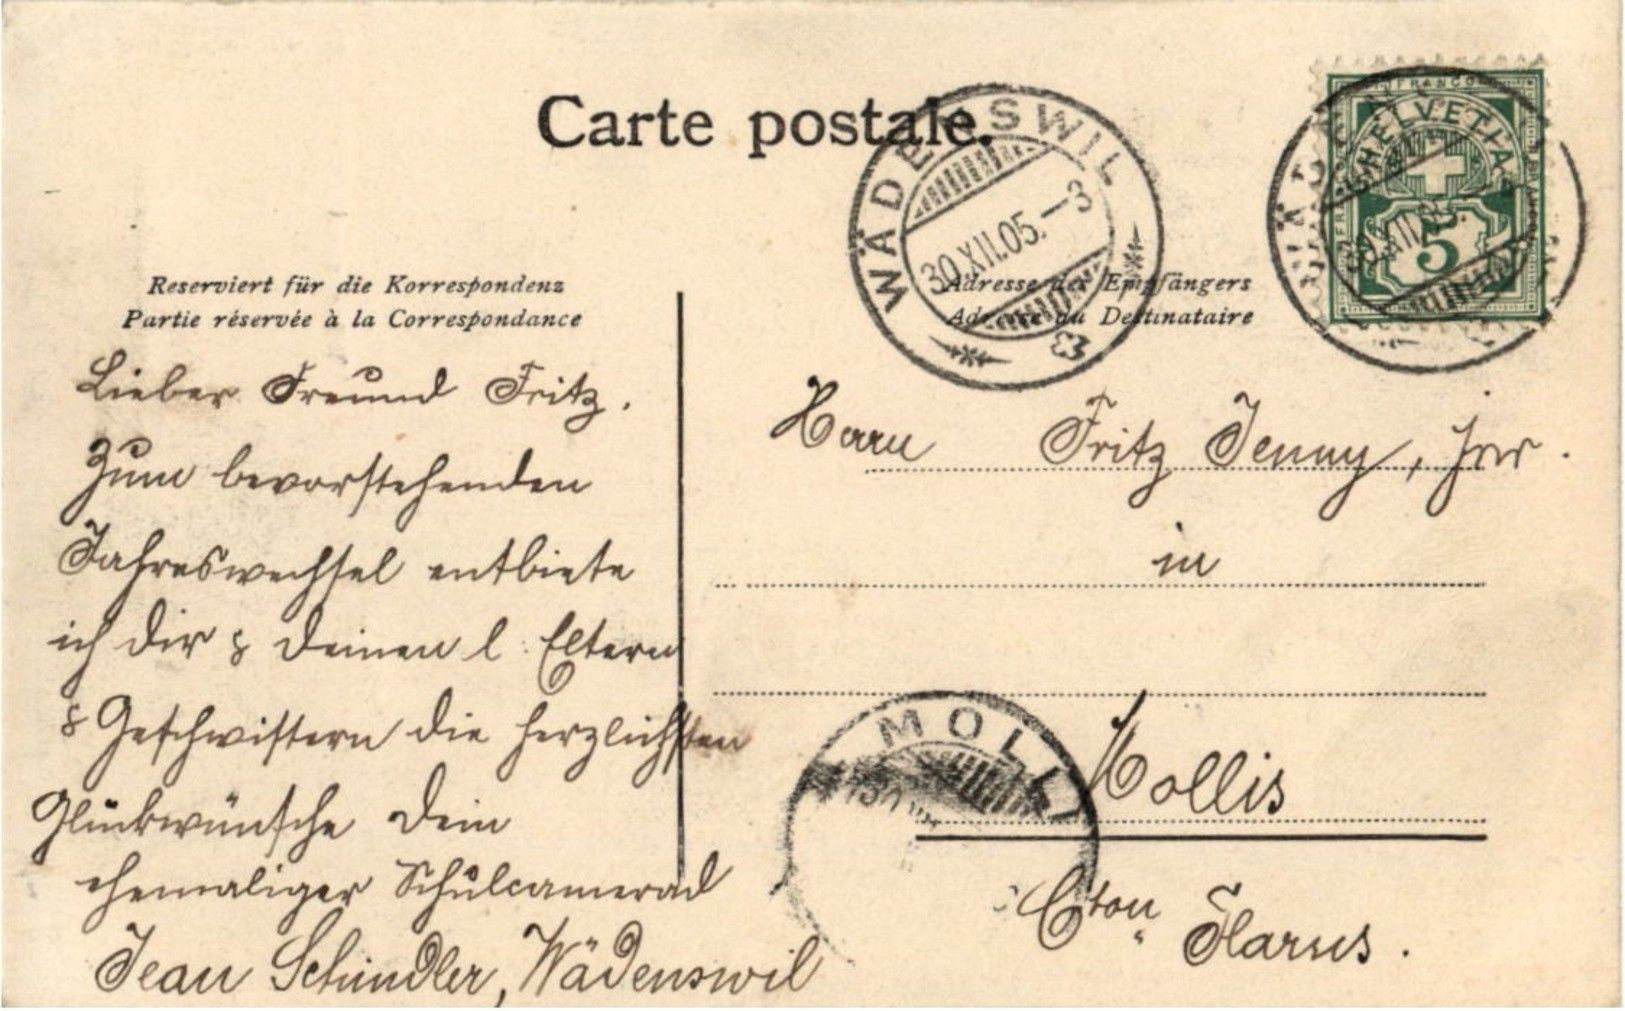 Carte postale.
WÄDENSWIL
30.XII.05.–3
FRANCO
HELVETIA
5
Reserviert für die Korrespondenz
Partie réservée à la Correspondance
Adresse des Empfängers
Adresse du Destinataire
Lieber Freund Fritz.
Zum bevorstehenden
Jahreswechsel entbiete
ich dir & deinen l. Eltern
& Geschwistern die herzlichsten
Glückwünsche dein
ehemaliger Schulcamerad
Jean Schindler, Wädenswil
Herrn Fritz Jenny, jnr.
in
Mollis
Cton Glarus.
MOLLI